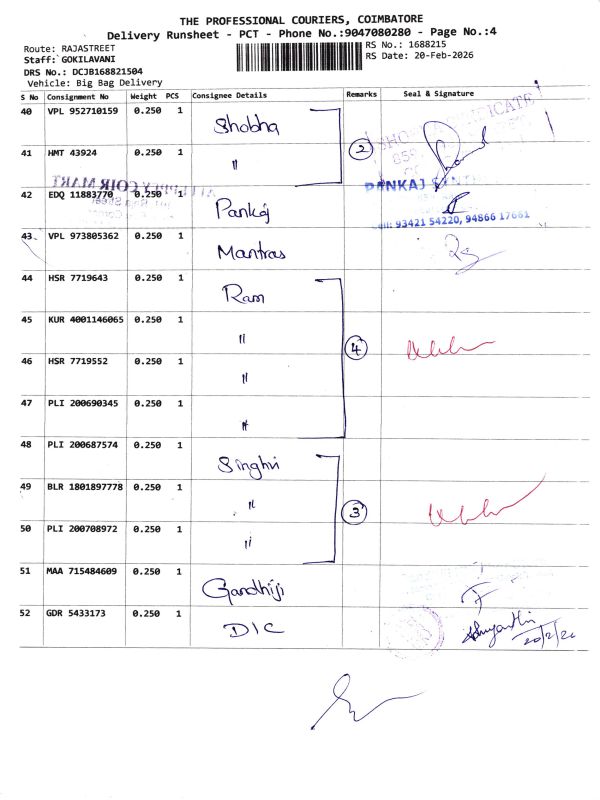 THE PROFESSIONAL COURIERS, COIMBATORE
Delivery Runsheet - PCT - Phone No.:9047080280 - Page No.:4
Route: RAJASTREET
RS No.: 1688215
Staff: GOKILAVANI
RS Date: 20-Feb-2026
DRS No.: DCJB168821504
Vehicle: Big Bag Delivery
S No Consignment No Weight PCS Consignee Details Remarks Seal & Signature
40 VPL 952710159 0.250 1 Shobha
41 HMT 43924 0.250 1 "
2
PANKAJ
42 EDQ 11883770 0.250 1 Pankaj
Cell: 93421 54220, 94866 17661
43 VPL 973805362 0.250 1 Mantras
44 HSR 7719643 0.250 1 Ram
45 KUR 4001146065 0.250 1 "
4
46 HSR 7719552 0.250 1 "
47 PLI 200690345 0.250 1 "
48 PLI 200687574 0.250 1 Singhvi
49 BLR 1801897778 0.250 1 "
3
50 PLI 200708972 0.250 1 "
51 MAA 715484609 0.250 1 Gandhiji
52 GDR 5433173 0.250 1 DIC
20/2/26